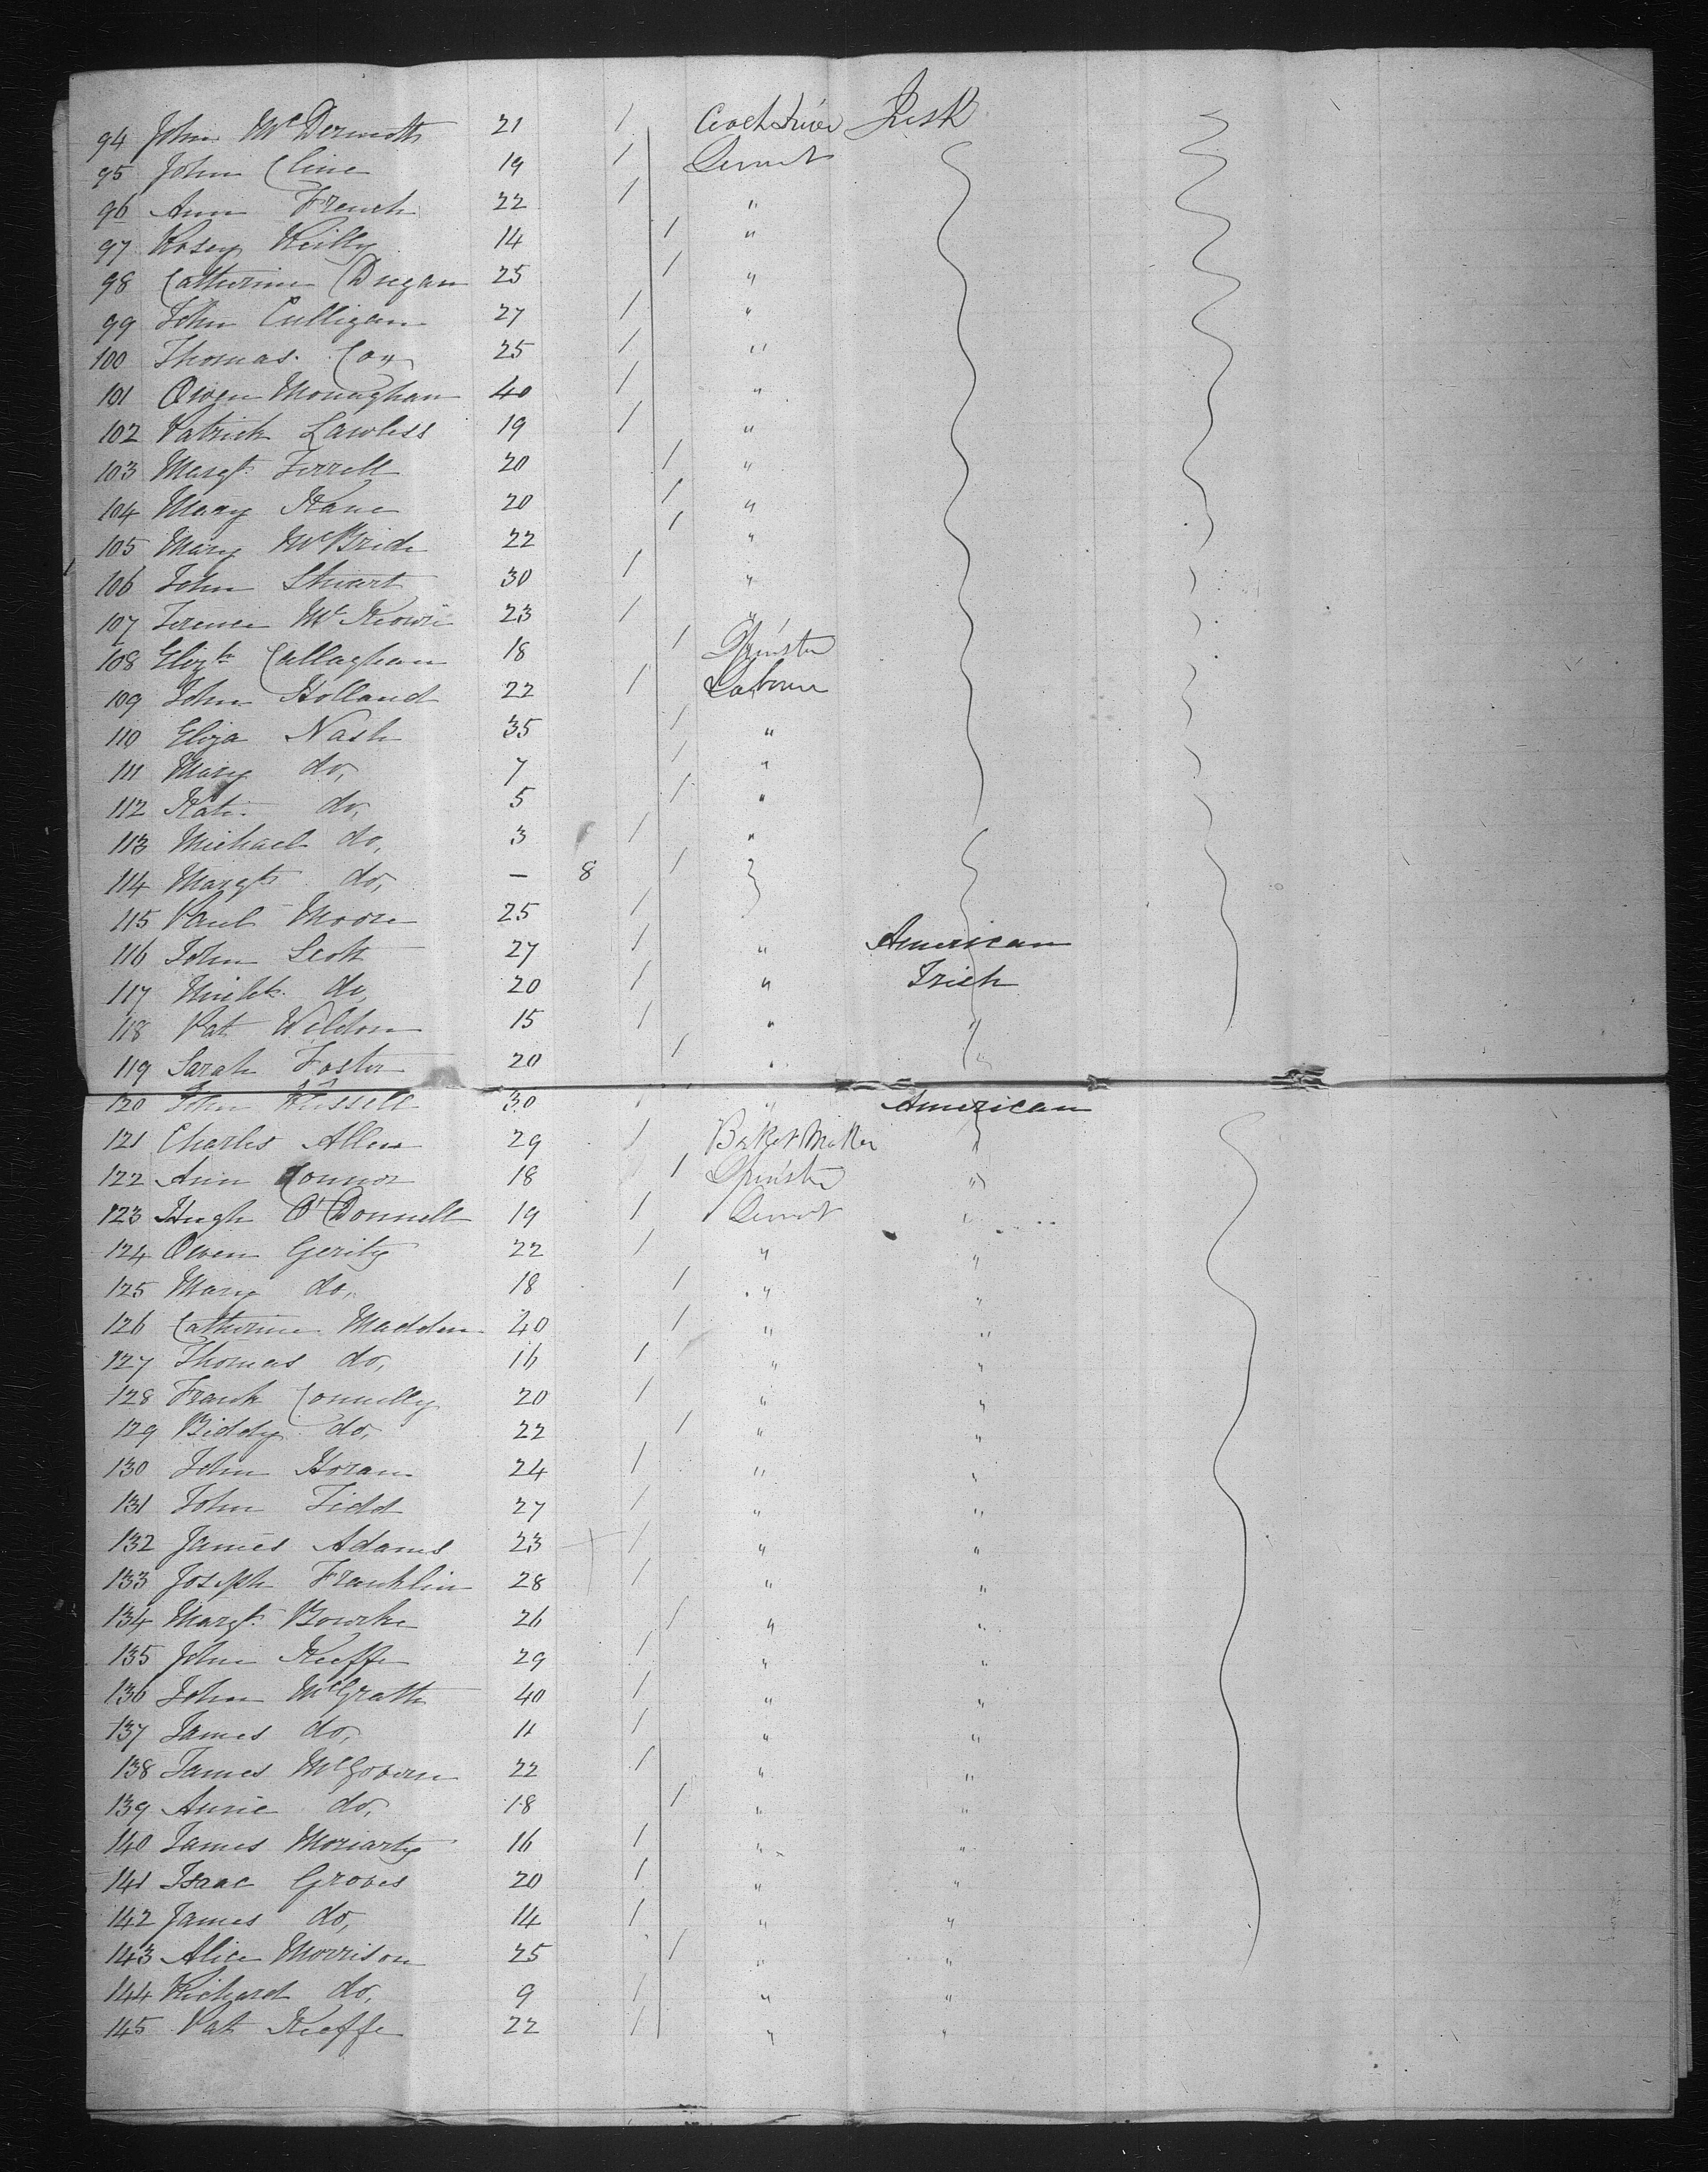 94 John McDermott 21 / Coachdriver Irish
95 John Cline 19 / Servnt
96 Ann French 22 / "
97 Rosey Reilly 14 / "
98 Catherine Dugan 25 / "
99 John Culligan 27 / "
100 Thomas Cox 25 / "
101 Owen Monaghan 40 / "
102 Patrick Lawless 19 / "
103 Margt. Ferrell 20 / "
104 Mary Kane 20 / "
105 Mary McBride 22 / "
106 John Stuart 30 / "
107 Terence McKeown 23 / "
108 Elizth Callaghan 18 / Spinster
109 John Holland 22 / Labourer
110 Eliza Nash 35 / "
111 Mary do, 7 / "
112 Kate do, 5 / "
113 Michael do, 3 / "
114 Margt do, — 8 /
115 Paul Moore 25 /
116 John Scott 27 / " American
117 do, 20 / " Irish
118 Pat Weldon 15 / " "
119 Sarah Foster 20 / " "
120 John Russell 30 / " American
121 Charles Allen 29 / Basket Maker "
122 Ann Connor 18 / Spinster "
123 Hugh O'Donnell 19 / Servnt "
124 Owen Gerity 22 / " "
125 Mary do, 18 / " "
126 Catherine Madden 40 / " "
127 Thomas do, 16 / " "
128 Frank Connelly 20 / " "
129 Biddy do, 22 / " "
130 John Horan 24 / " "
131 John Fidd 27 / " "
132 James Adams 23 / " "
133 Joseph Franklin 28 / " "
134 Margt. Bourke 26 / " "
135 John Keeffe 29 / " "
136 John McGrath 40 / " "
137 James do, 11 / " "
138 James McGovern 22 / " "
139 Annie do, 18 / " "
140 James Moriarty 16 / " "
141 Isaac Groves 20 / " "
142 James do, 14 / " "
143 Alice Morrison 25 / " "
144 Richard do, 9 / " "
145 Pat Keeffe 22 / " "